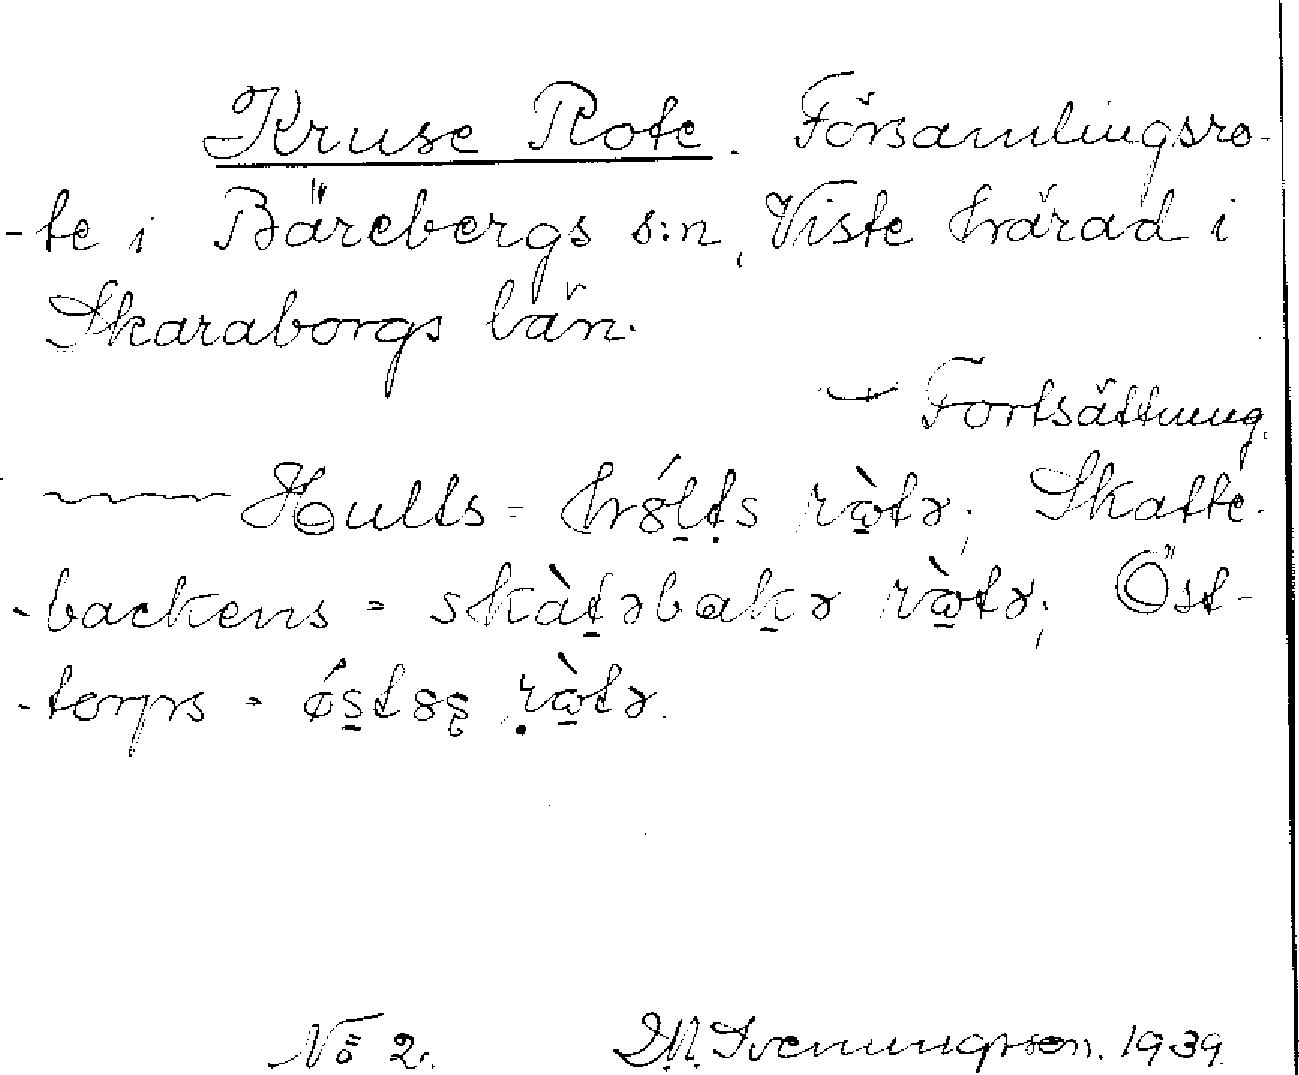 Kruse Rote. Församlingsro-
-te i Bärebergs s:n, Viste härad i
Skaraborgs län.
Fortsättning.
Hults = hól̠t̠s rò̠tə; Skatte-
-backens = skàt̠əbak̠ə rò̠tə; Öst-
-torps =
No 2. D.M. Svenungsson. 1939